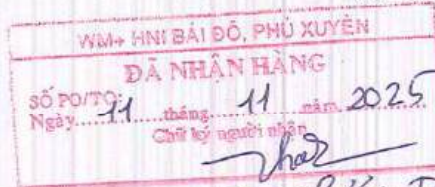 WM+ HNI BÃI ĐỖ, PHÚ XUYÊN
ĐÃ NHẬN HÀNG
SỐ PO/TO:
Ngày.....11.....tháng.....11.....năm.2025
Chữ ký người nhận